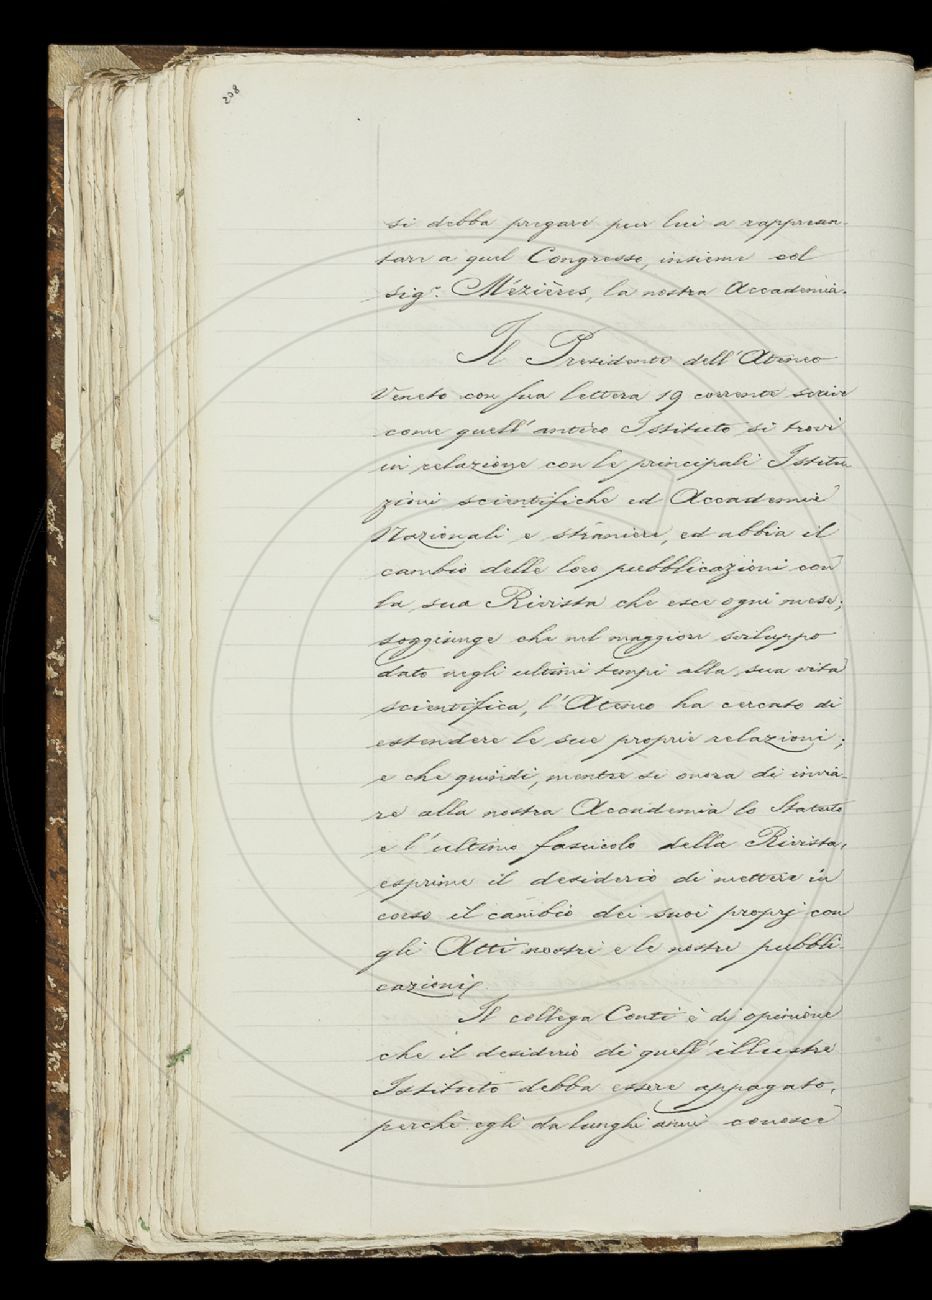 208
si debba pregare pur lui a rappresen-
tare a quel Congresso, insieme col
Sig.r Mézières, la nostra Accademia.
Il Presidente dell'Ateneo
Veneto con sua lettera 19 corrente scrive
come quell'antico Istituto si trovi
in relazione con le principali Istitu-
zioni scientifiche ed Accademie
Nazionali e straniere, ed abbia il
cambio delle loro pubblicazioni con
la sua Rivista che esce ogni mese;
soggiunge che nel maggiore sviluppo
dato negli ultimi tempi alla sua vita
scientifica, l'Ateneo ha cercato di
estendere le sue proprie relazioni;
e che quindi, mentre si onora di invia-
re alla nostra Accademia lo Statuto
e l'ultimo fascicolo della Rivista,
esprime il desiderio di mettere in
corso il cambio dei suoi proprj con
gli Atti nostri e le nostre pubbli-
cazioni.
Il collega Conti è di opinione
che il desiderio di quell'illustre
Istituto debba essere appagato,
perchè egli da lunghi anni conosce